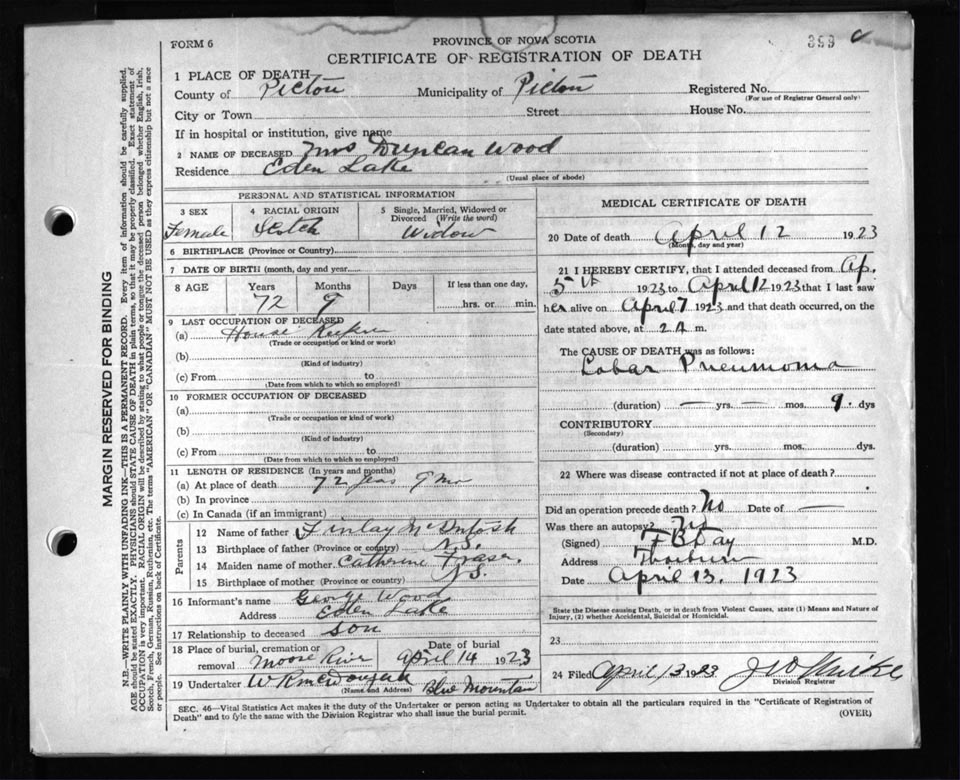 FORM 6
PROVINCE OF NOVA SCOTIA
CERTIFICATE OF REGISTRATION OF DEATH
399 c
1 PLACE OF DEATH
County of Pictou Municipality of Pictou Registered No.
(For use of Registrar General only)
City or Town Street House No.
If in hospital or institution, give name
2 NAME OF DECEASED Mrs Duncan Wood
Residence Eden Lake
(Usual place of abode)
PERSONAL AND STATISTICAL INFORMATION
3 SEX 4 RACIAL ORIGIN 5 Single, Married, Widowed or Divorced (Write the word)
Female Scotch Widow
6 BIRTHPLACE (Province or Country)
7 DATE OF BIRTH (month, day and year)
8 AGE Years Months Days If less than one day,
72 9 hrs. or min.
9 LAST OCCUPATION OF DECEASED
(a) House Keeper
(Trade or occupation or kind or work)
(b)
(Kind of industry)
(c) From to
(Date from which to which so employed)
10 FORMER OCCUPATION OF DECEASED
(a)
(Trade or occupation or kind of work)
(b)
(Kind of industry)
(c) From to
(Date from which to which so employed)
11 LENGTH OF RESIDENCE (In years and months)
(a) At place of death 72 years 9 mo
(b) In province
(c) In Canada (if an immigrant)
Parents
12 Name of father Finlay McIntosh
13 Birthplace of father (Province or country) N.S.
14 Maiden name of mother Catherine Fraser
15 Birthplace of mother (Province or country) N.S.
16 Informant's name George Wood
Address Eden Lake
17 Relationship to deceased son
18 Place of burial, cremation or removal Moose River Date of burial April 14 1923
19 Undertaker W R Blue Mountain
(Name and Address)
MEDICAL CERTIFICATE OF DEATH
20 Date of death April 12 1923
(Month, day and year)
21 I HEREBY CERTIFY, that I attended deceased from Ap.
5th 1923 to April 12 1923 that I last saw
her alive on April 7 1923 and that death occurred, on the
date stated above, at 2 A m.
The CAUSE OF DEATH was as follows:
Lobar Pneumonia
(duration) — yrs. — mos. 9. dys
CONTRIBUTORY
(Secondary)
(duration) yrs. mos. dys.
22 Where was disease contracted if not at place of death?
Did an operation precede death? No Date of —
Was there an autopsy? No
(Signed) F B Day M.D.
Address Thorburn
Date April 13, 1923
State the Disease causing Death, or in death from Violent Causes, state (1) Means and Nature of
Injury, (2) whether Accidental, Suicidal or Homicidal.
23
24 Filed April 13 1923
Division Registrar
SEC. 46—Vital Statistics Act makes it the duty of the Undertaker or person acting as Undertaker to obtain all the particulars required in the "Certificate of Registration of
Death" and to fyle the same with the Division Registrar who shall issue the burial permit.
(OVER)
MARGIN RESERVED FOR BINDING
N.B.—WRITE PLAINLY WITH UNFADING INK—THIS IS A PERMANENT RECORD. Every item of information should be carefully supplied.
AGE should be stated EXACTLY. PHYSICIANS should STATE CAUSE OF DEATH in plain terms, so that it may be properly classified. Exact statement of
OCCUPATION is very important. RACIAL ORIGIN will be described by stating to what people or tongue the deceased person belonged whether English, Irish,
Scotch, French, German, Russian, Ruthenian, etc. The terms "AMERICAN" OR "CANADIAN" MUST NOT BE USED as they express citizenship but not a race
or people. See instructions on back of Certificate.